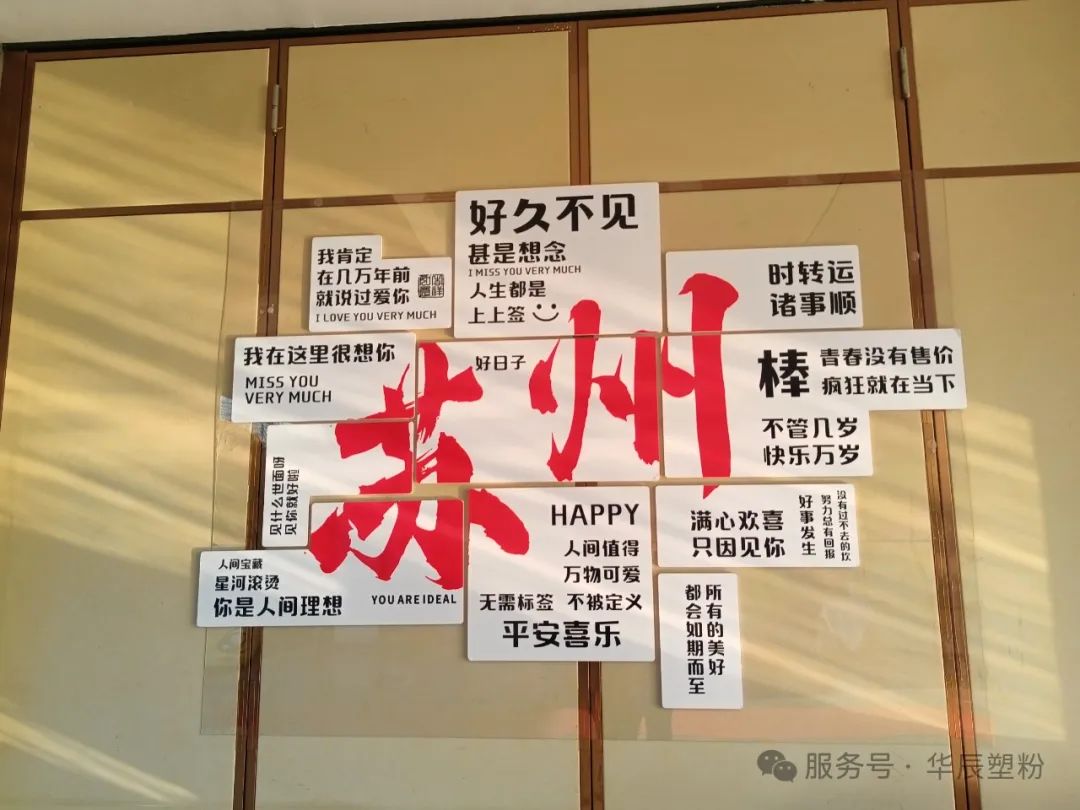 好久不见
甚是想念
I MISS YOU VERY MUCH
人生都是
上上签
我肯定
在几万年前
就说过爱你
I LOVE YOU VERY MUCH
时转运
诸事顺
我在这里很想你
MISS YOU
VERY MUCH
好日子
苏州
棒
青春没有售价
疯狂就在当下
不管几岁
快乐万岁
见什么世面呀
见你就好啦
HAPPY
人间值得
万物可爱
无需标签 不被定义
平安喜乐
满心欢喜
只因见你
好事发生
没有过不去的坎
努力总有回报
人间宝藏
星河滚烫
你是人间理想
YOU ARE IDEAL
所有的美好
都会如期而至
服务号·华辰塑粉